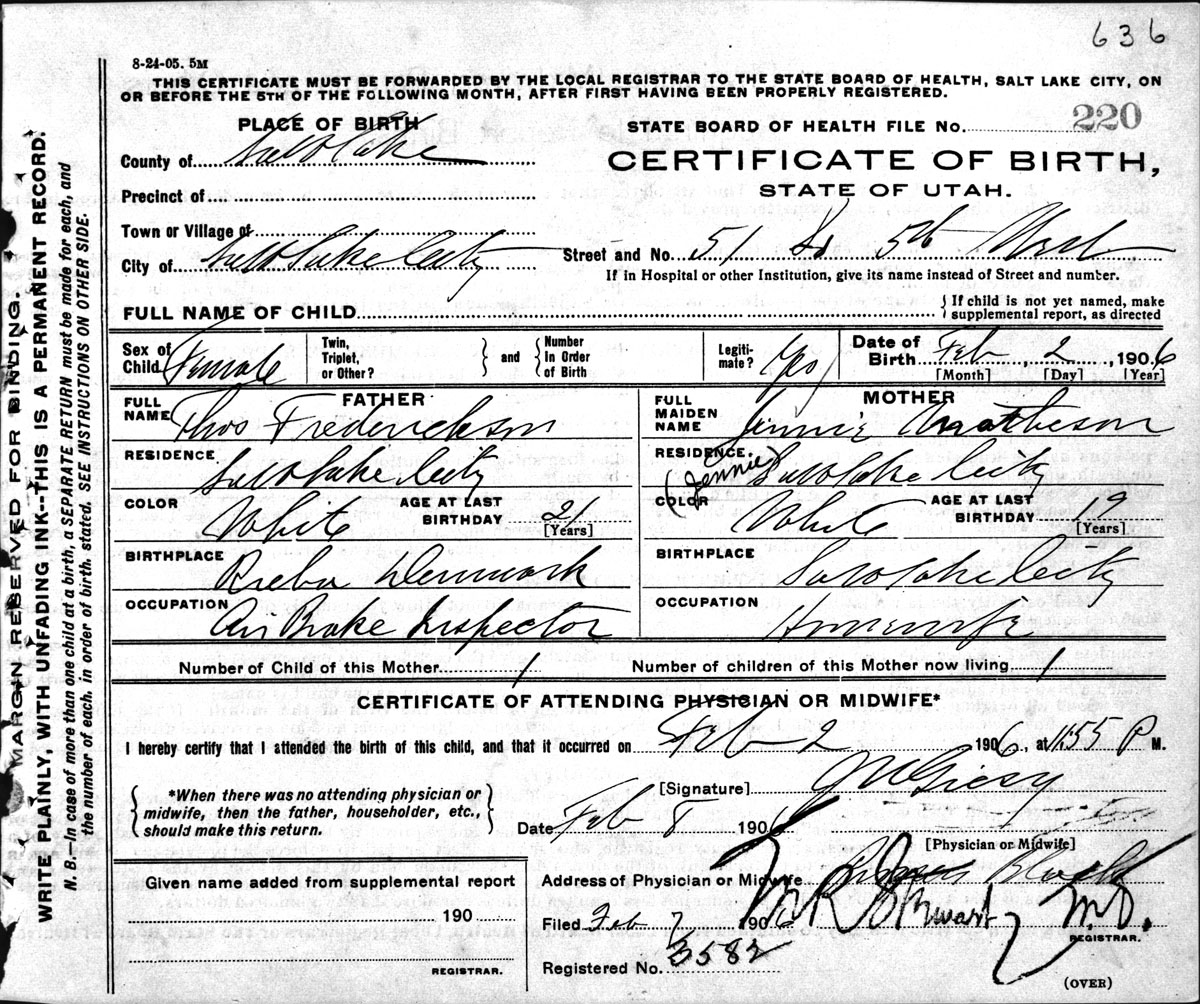 636
8-24-05. 5M
THIS CERTIFICATE MUST BE FORWARDED BY THE LOCAL REGISTRAR TO THE STATE BOARD OF HEALTH, SALT LAKE CITY, ON
OR BEFORE THE 5TH OF THE FOLLOWING MONTH, AFTER FIRST HAVING BEEN PROPERLY REGISTERED.
PLACE OF BIRTH
STATE BOARD OF HEALTH FILE No. 220
County of Salt Lake
CERTIFICATE OF BIRTH,
STATE OF UTAH.
Precinct of
Town or Village of
City of Salt Lake City
Street and No. 51 So 5th West
If in Hospital or other Institution, give its name instead of Street and number.
FULL NAME OF CHILD
{ If child is not yet named, make
supplemental report, as directed
Sex of Child Female
Twin, Triplet, or Other? } and { Number In Order of Birth
Legitimate? Yes
Date of Birth Feb 2, 1906
[Month] [Day] [Year]
FATHER
FULL NAME Thos Frederickson
RESIDENCE Salt Lake City
COLOR White
AGE AT LAST BIRTHDAY 21
[Years]
BIRTHPLACE Denmark
OCCUPATION Air Brake Inspector
MOTHER
FULL MAIDEN NAME Jennie Matheson
(Jennie)
RESIDENCE Salt Lake City
COLOR White
AGE AT LAST BIRTHDAY 19
[Years]
BIRTHPLACE Salt Lake City
OCCUPATION Housewife
Number of Child of this Mother 1
Number of children of this Mother now living 1
CERTIFICATE OF ATTENDING PHYSICIAN OR MIDWIFE*
I hereby certify that I attended the birth of this child, and that it occurred on Feb 2 1906, at 11:55 P M.
{ *When there was no attending physician or }
midwife, then the father, householder, etc.,
should make this return.
[Signature]
Date Feb 8 1906
[Physician or Midwife]
Given name added from supplemental report
190
REGISTRAR.
Address of Physician or Midwife Block
Filed Feb 7 1906
M.D.
REGISTRAR.
Registered No. 3582
(OVER)
MARGIN RESERVED FOR BINDING.
WRITE PLAINLY, WITH UNFADING INK--THIS IS A PERMANENT RECORD.
N. B. In case of more than one child at a birth, a SEPARATE RETURN must be made for each, and
the number of each, in order of birth, stated. SEE INSTRUCTIONS ON OTHER SIDE.